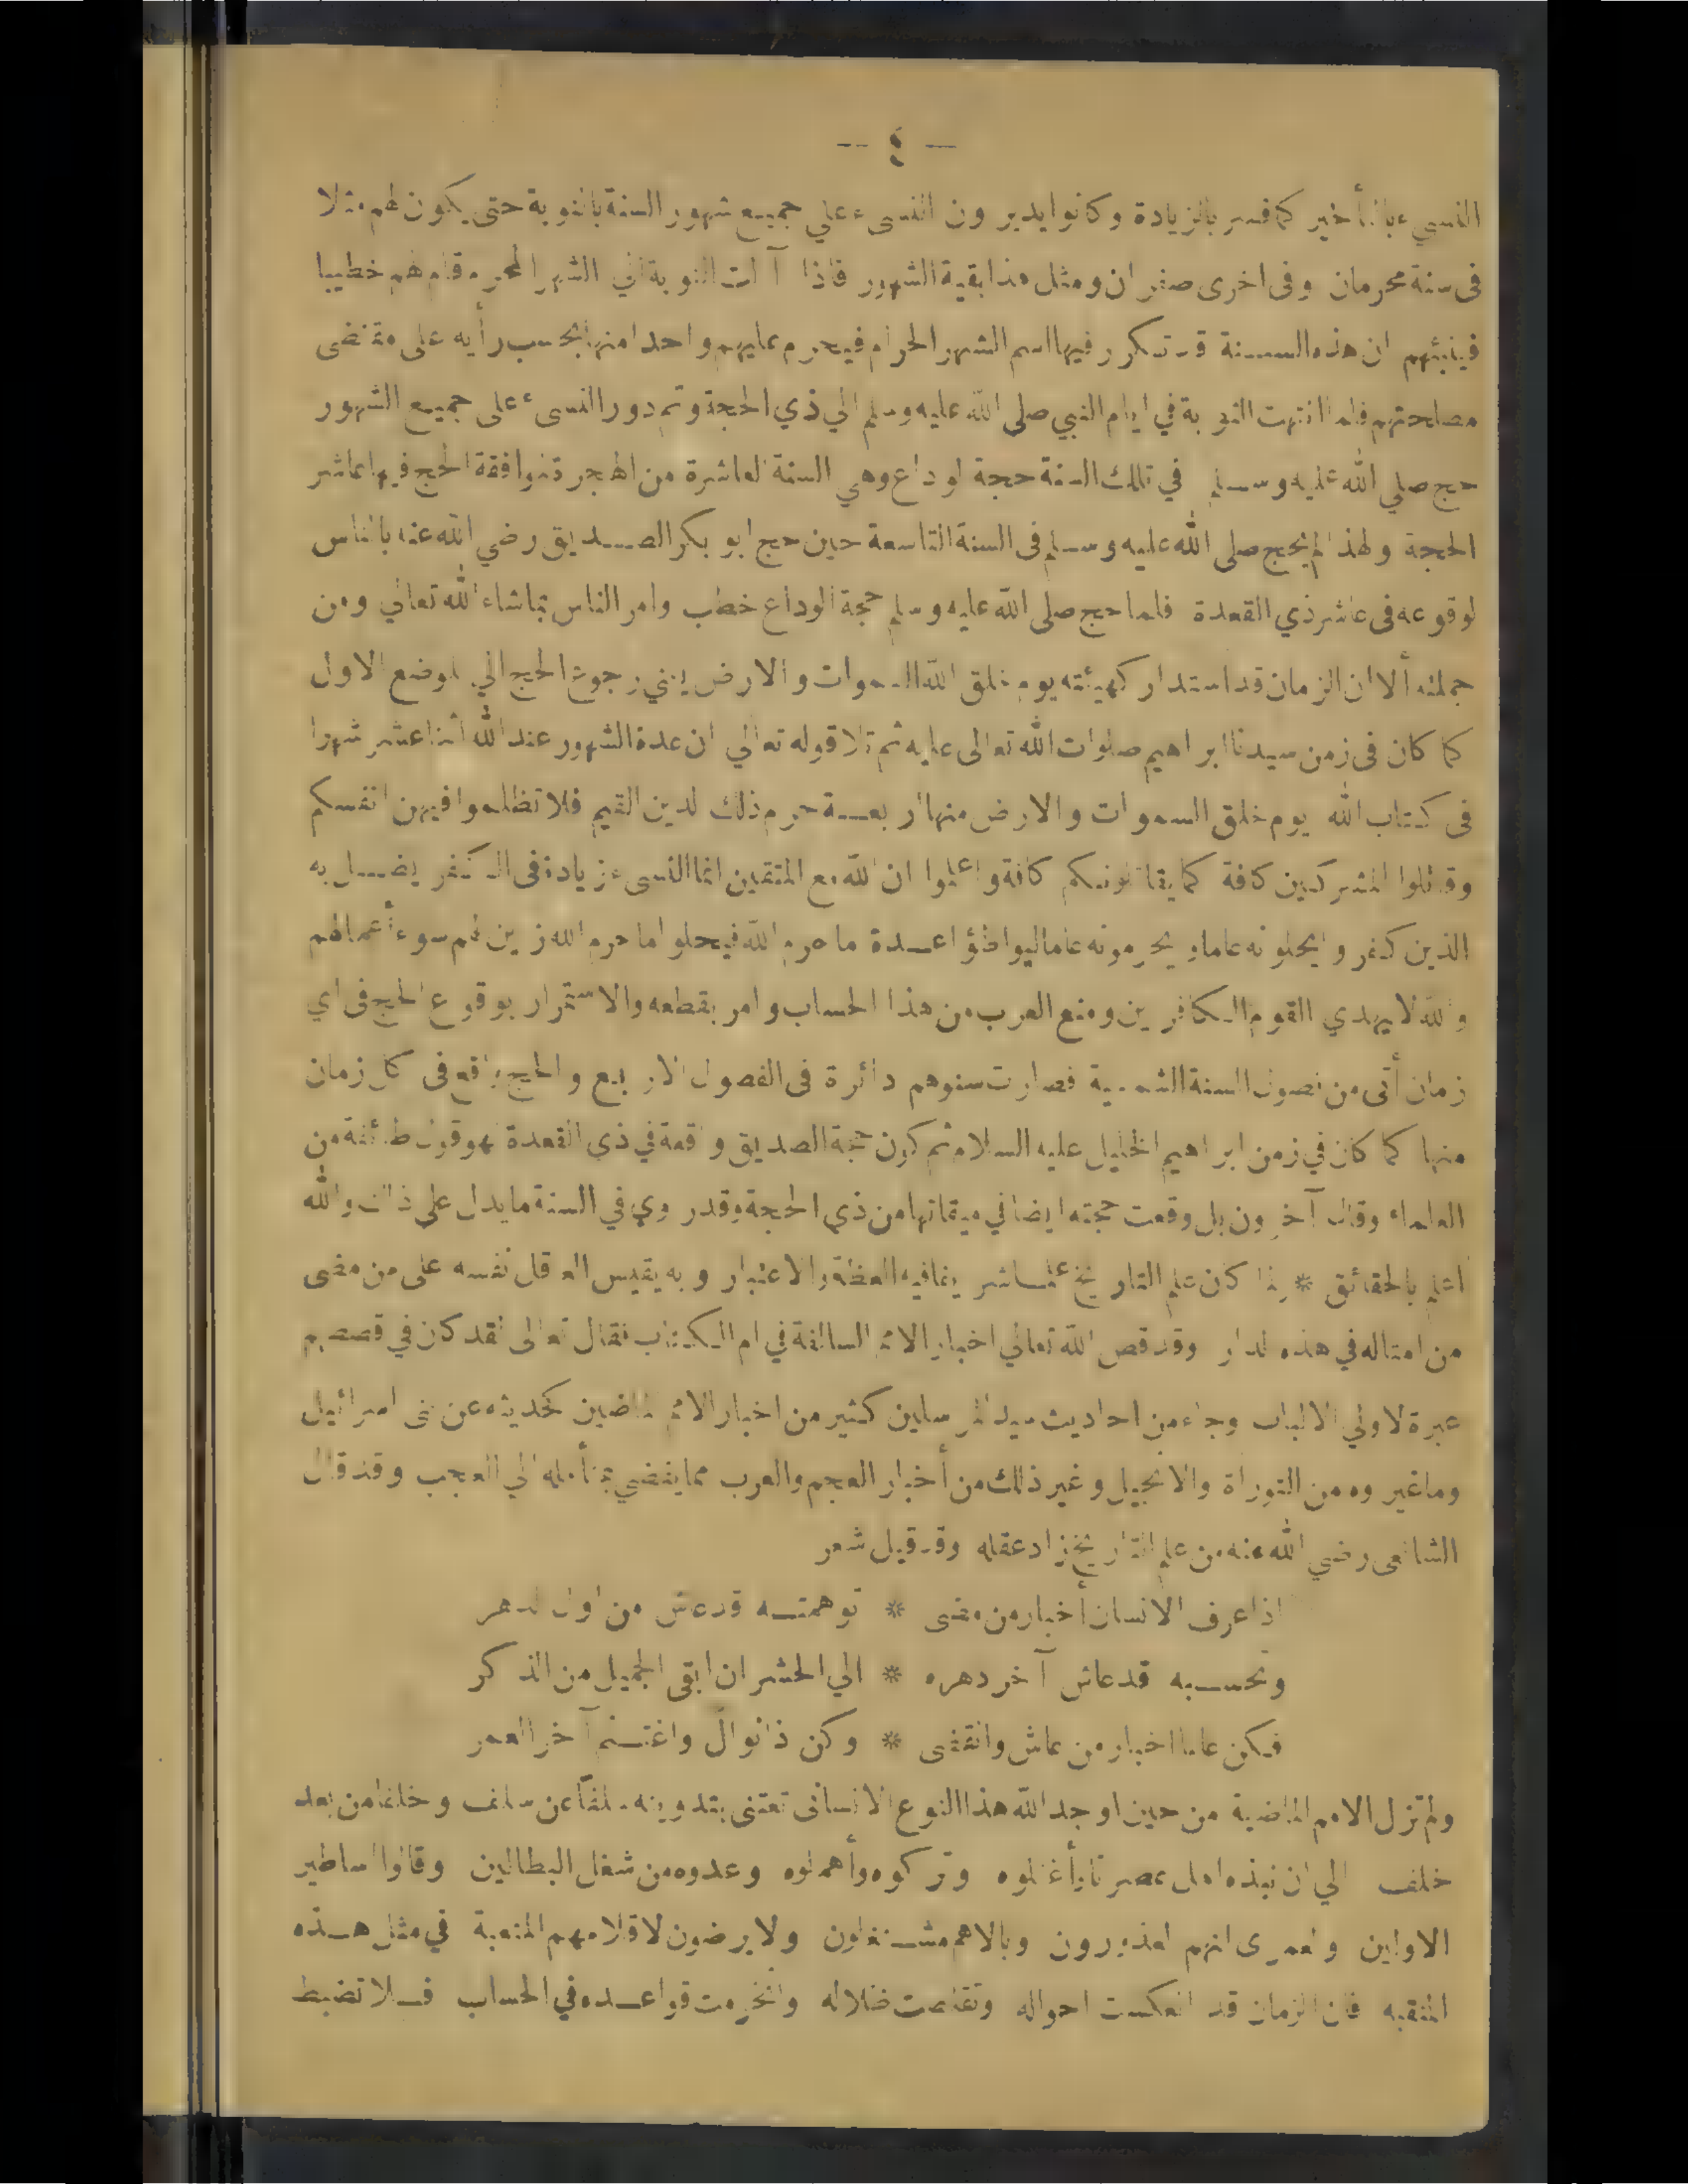 — ٤ —
النسيء بالتأخير كما فسر بالزيادة وكانوا يديرون النسىء علي جميع شهور السنة بالنوبة حتى يكون لهم مثلا
فى سنة محرمان وفى اخرى صفران ومثل هذا بقية الشهور فاذا آلت النوبة الي الشهر المحرم قام لهم خطيبا
فينبئهم ان هذه السنة قد تكرر فيها اسم الشهر الحرام فيحرم عليهم واحدا منها بحسب رأيه على مقتضى
مصلحتهم فلما انتهت النوبة في ايام النبي صلى الله عليه وسلم الي ذي الحجة وتم دور النسىء على جميع الشهور
حج صلي الله عليه وسلم في تلك السنة حجة الوداع وهي السنة العاشرة من الهجرة لموافقة الحج فيها عاشر
الحجة ولهذا لم يحج صلى الله عليه وسلم فى السنة التاسعة حين حج ابو بكر الصديق رضي الله عنه بالناس
لوقوعه فى عاشر ذي القعدة فلما حج صلى الله عليه وسلم حجة الوداع خطب وامر الناس بما شاء الله تعالي ومن
جملته ألا ان الزمان قد استدار كهيئته يوم خلق الله السموات والارض يعني رجوع الحج الي الموضع الاول
كما كان فى زمن سيدنا ابراهيم صلوات الله تعالى عليه ثم تلا قوله تعالي ان عدة الشهور عند الله اثنا عشر شهرا
فى كتاب الله يوم خلق السموات والارض منها أربعة حرم ذلك الدين القيم فلا تظلموا فيهن انفسكم
وقاتلوا المشركين كافة كما يقاتلونكم كافة واعلموا ان الله مع المتقين انما النسىء زيادة فى الكفر يضل به
الذين كفروا يحلونه عاما ويحرمونه عاما ليواطؤا عدة ما حرم الله فيحلوا ما حرم الله زين لهم سوء أعمالهم
والله لا يهدي القوم الكافرين ومنع العرب من هذا الحساب وامر بقطعه والاستمرار بوقوع الحج فى اي
زمان أتى من فصول السنة الشمسية فصارت سنوهم دائرة فى الفصول الاربع والحج واقع فى كل زمان
منها كما كان في زمن ابراهيم الخليل عليه السلام ثم كون حجة الصديق واقعة في ذى القعدة هو قول طائفة من
العلماء وقال آخرون بل وقعت حجته ايضا في ميقاتها من ذى الحجة وقد روي في السنة ما يدل على ذلك والله
اعلم بالحقائق * ولما كان علم التاريخ علما شريفا فيه العظة والاعتبار وبه يقيس العاقل نفسه على من مضى
من امثاله في هذه الدار وقد قص الله تعالي اخبار الامم السالفة في ام الكتاب فقال تعالى لقد كان في قصصهم
عبرة لاولي الالباب وجاء من احاديث سيد المرسلين كثير من اخبار الامم الماضين كحديثه عن بنى اسرائيل
وما غيروه من التوراة والانجيل وغير ذلك من أخبار العجم والعرب مما يفضي بمتأمله الي العجب وقد قال
الشافعى رضي الله عنه من علم التاريخ زاد عقله وقد قيل شعر
اذا عرف الانسان أخبار من مضى * توهمته قد عاش من اول الدهر
وتحسبه قد عاش آخر دهره * الي الحشر ان ابقى الجميل من الذكر
فكن عالما اخبار من عاش وانقضى * وكن ذا نوال واغتنم آخر العمر
ولم تزل الامم الماضية من حين اوجد الله هذا النوع الانسانى تعتنى بتدوينه سلفا عن سلف وخلفا من بعد
خلف الي ان نبذه اهل عصرنا وأغفلوه وتركوه وأهملوه وعدوه من شغل البطالين وقالوا اساطير
الاولين ولعمرى انهم لمعذورون وبالاهم مشتغلون ولا يرضون لاقلامهم المتعبة في مثل هذه
المنقبة فان الزمان قد انعكست احواله وتقلصت ظلاله وانخرمت قواعده في الحساب فلا تضبط